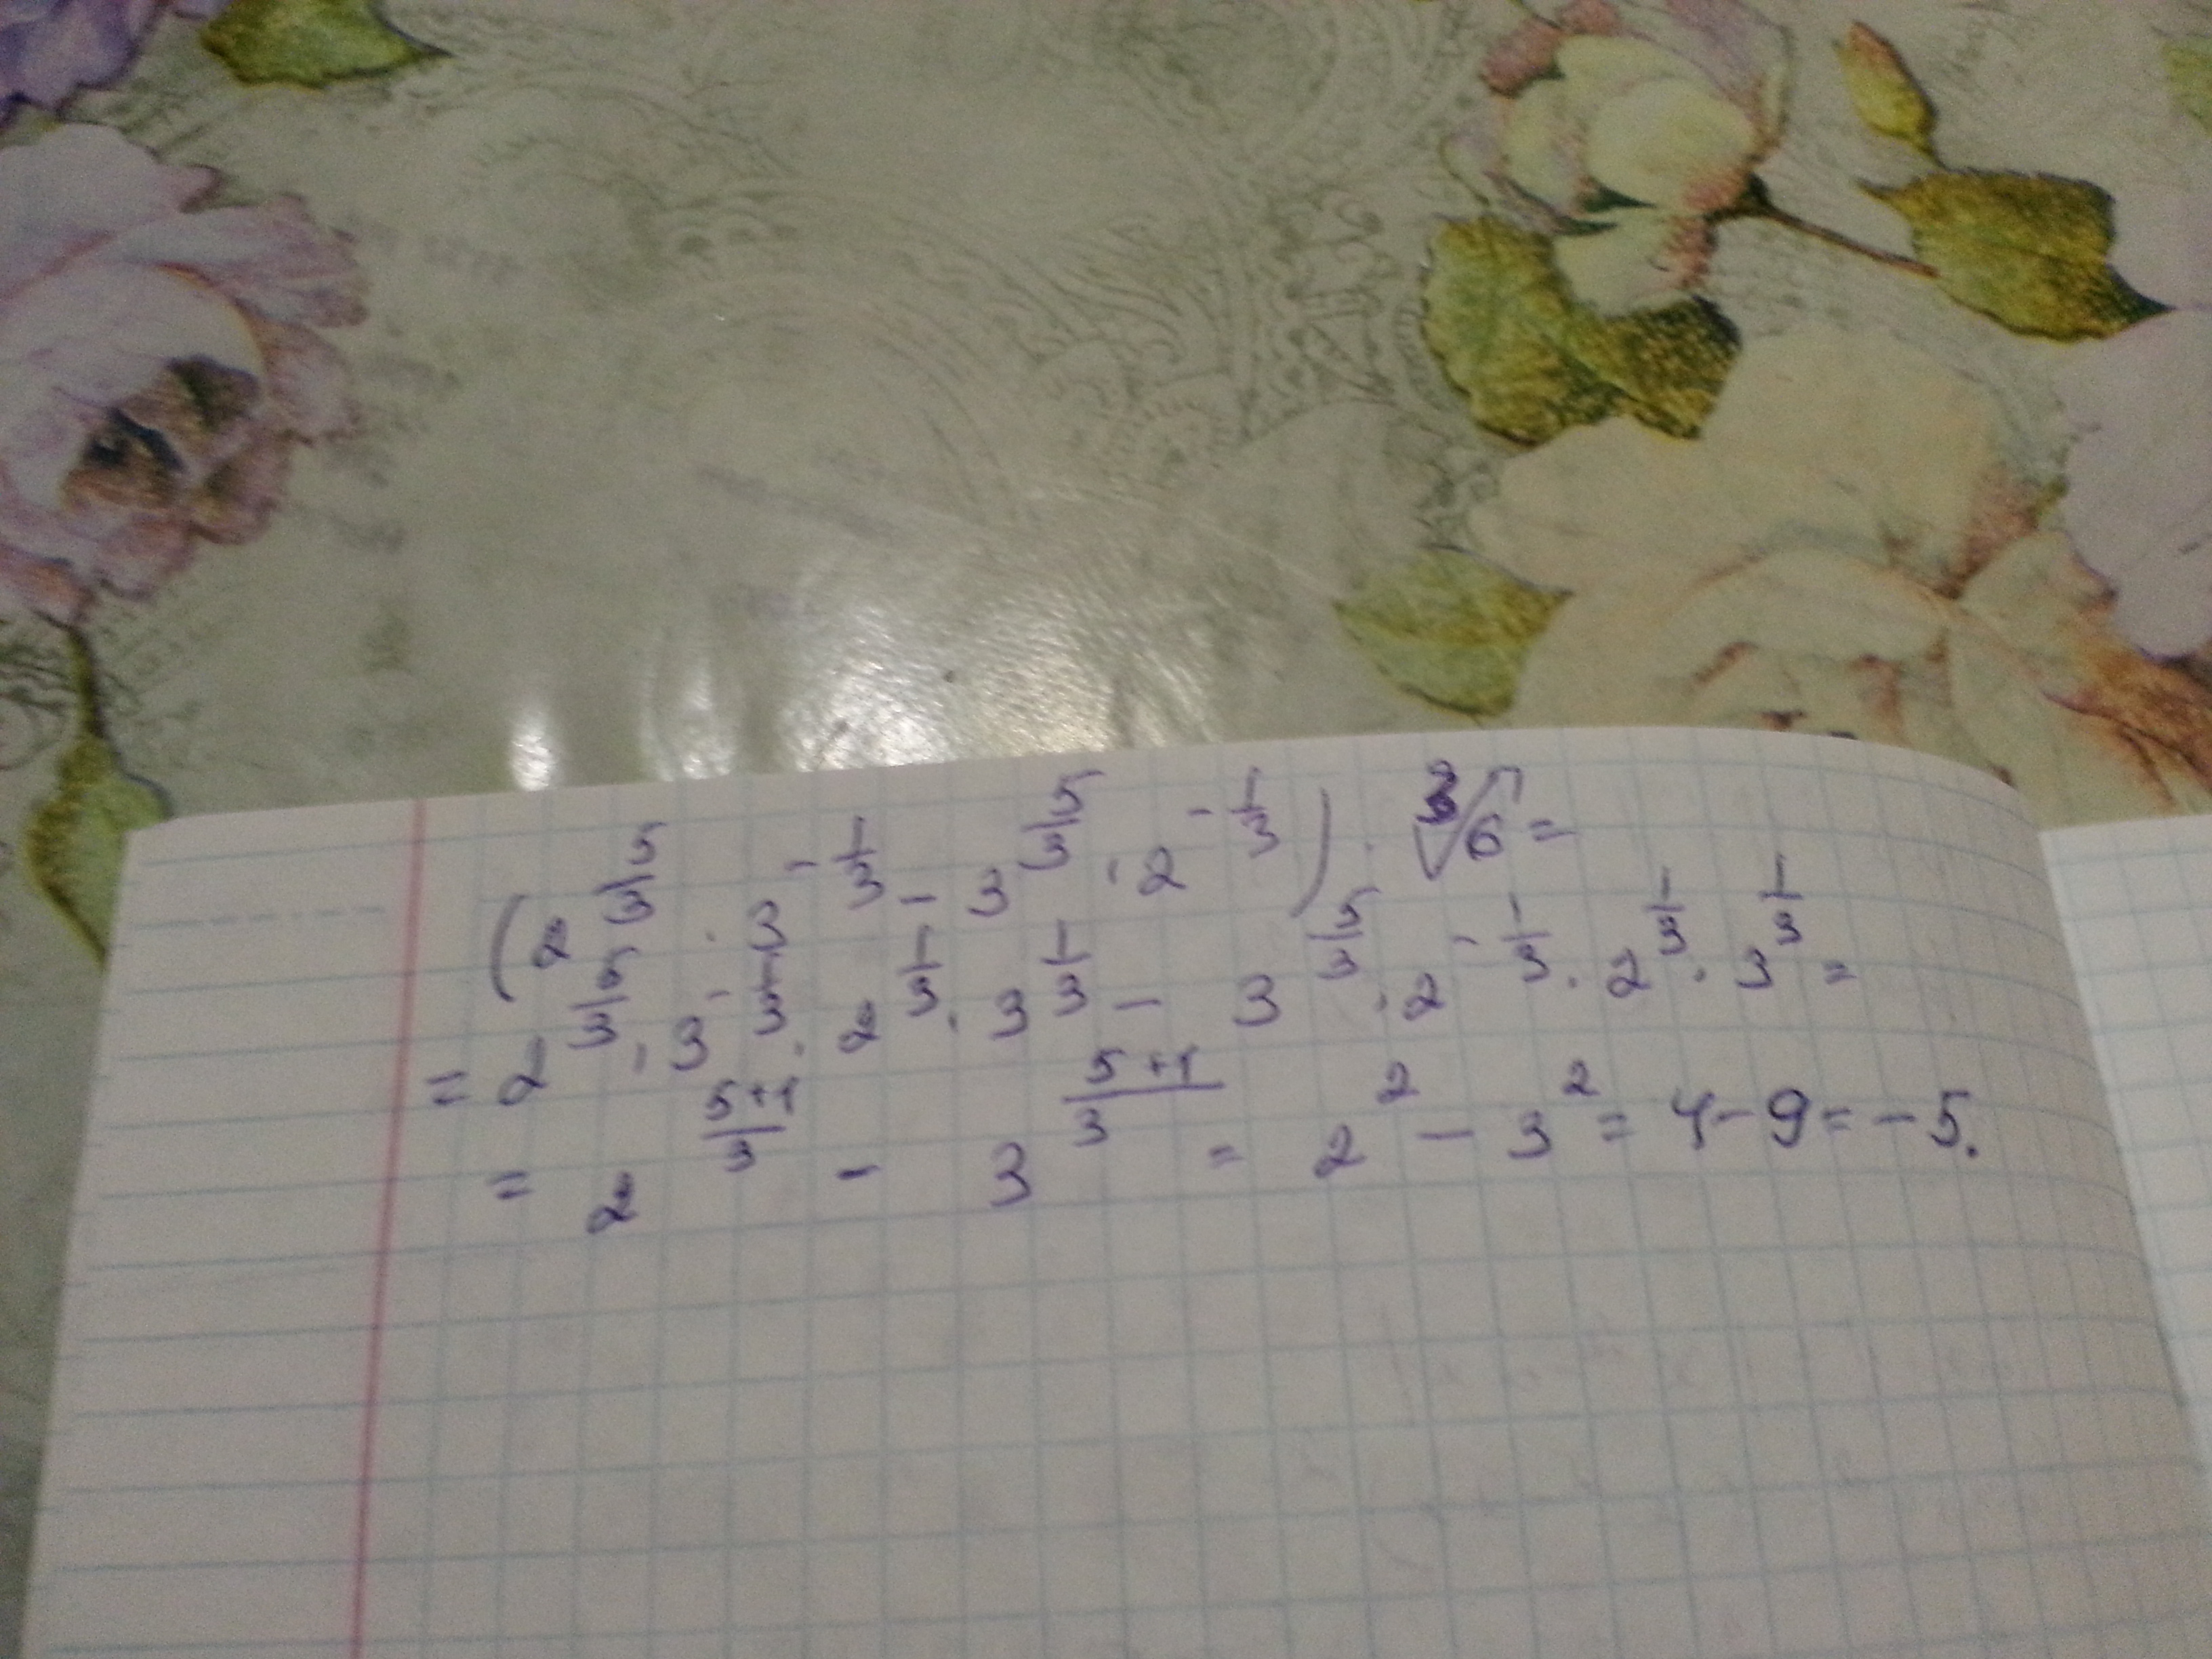 (2^{5/3} · 3^{-1/3} - 3^{5/3} · 2^{-1/3}) · ∛6 =
= 2^{5/3} · 3^{-1/3} · 2^{1/3} · 3^{1/3} - 3^{5/3} · 2^{-1/3} · 2^{1/3} · 3^{1/3} =
= 2^{(5+1)/3} - 3^{(5+1)/3} = 2² - 3² = 4 - 9 = -5.